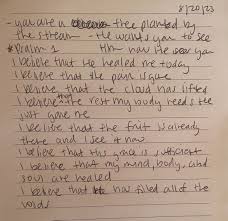 8/20/23
- you are a tree planted by
the stream - He wants you to see
*Psalm 1 Him now He sees you
I believe that He healed me today
I believe that the pain is gone
I believe that the cloud has lifted
I believe that the rest my body needs He
just gave me
I believe that the fruit is already
there and I see it now
I believe that His grace is sufficient
I believe that my mind, body, and
soul are healed
I believe that He has filled all of the
voids